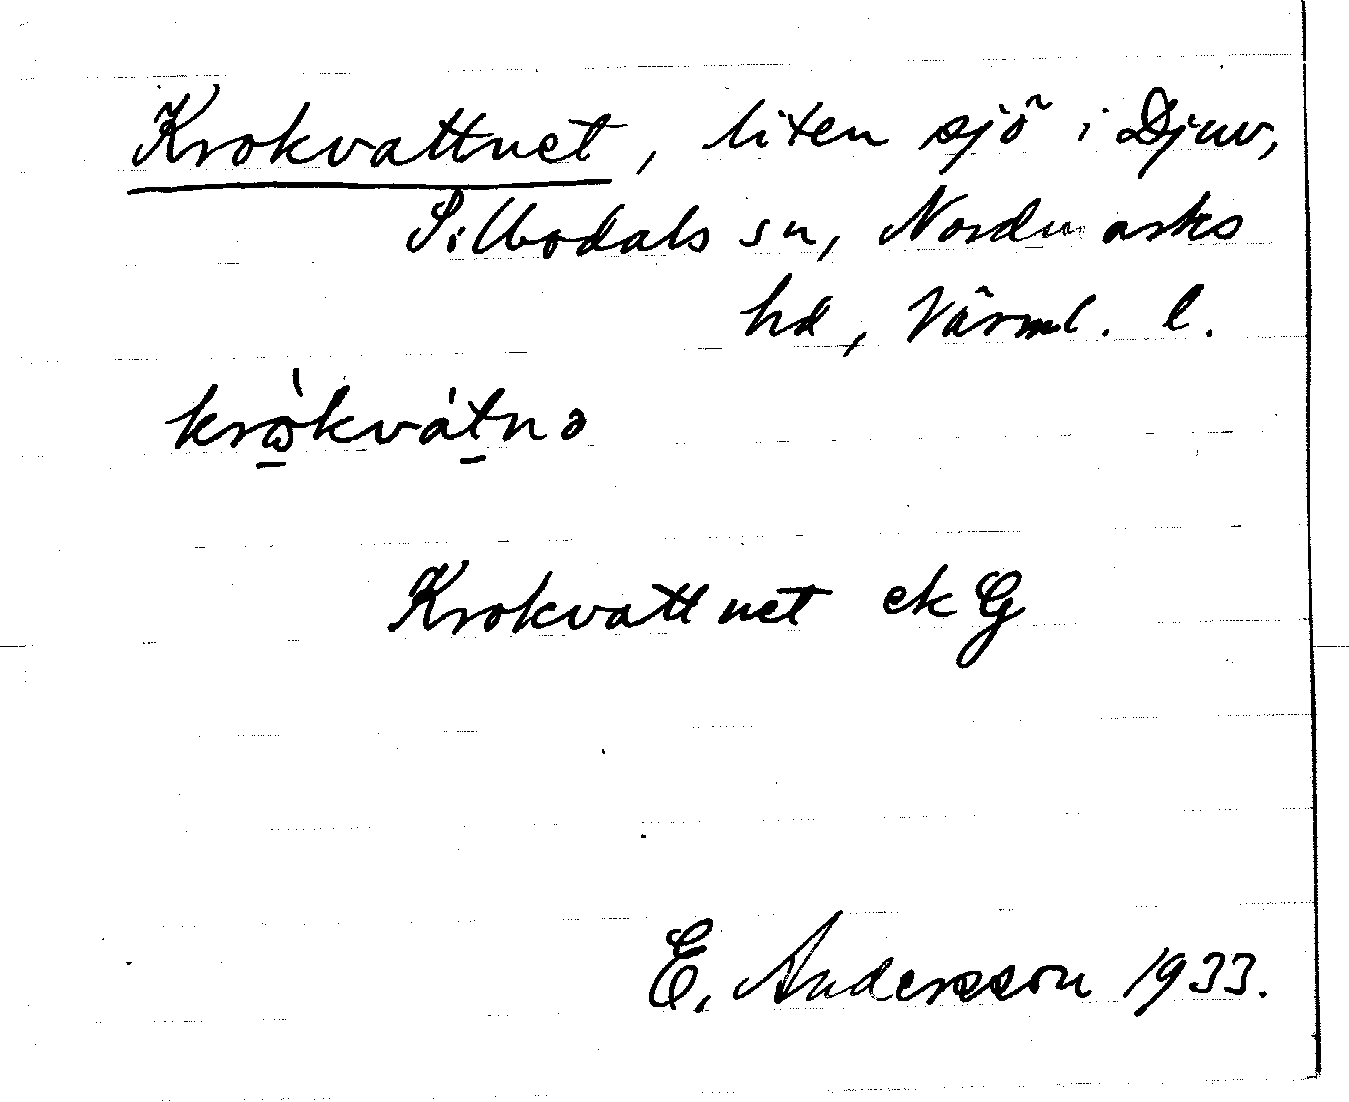 Krokvattnet, liten sjö i Djuv,
Silbodals sn, Nordmarks
hd, Värml. l.
krɷ̀kvátnə
Krokvattnet ek G
E. Andersson 1933.